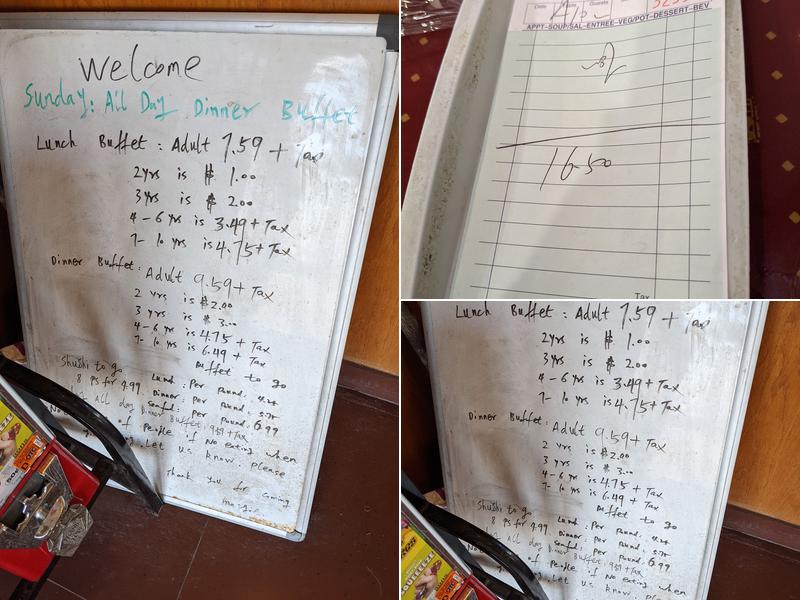 Welcome
Sunday: All Day Dinner Buffet
Lunch Buffet: Adult 7.59 + Tax
2yrs is $ 1.00
3yrs is $ 2.00
4-6 yrs is 3.49 + Tax
7-10 yrs is 4.75 + Tax
Dinner Buffet: Adult 9.59 + Tax
2 yrs is $2.00
3 yrs is $3.00
4-6 yrs is 4.75 + Tax
7-10 yrs is 6.49 + Tax
Shushi to go
8 PS for 4.99
Buffet to go
Lunch: Per Pound.
Dinner: Per Pound.
Per Pound. 6.99
All day Dinner Buffet 9.59 + Tax
of People if No eating when
Let us know. please
Thank you for coming
APPT-SOUP/SAL-ENTREE-VEG/POT-DESSERT-BEV
16.50
Tax
Lunch Buffet: Adult 7.59 + Tax
2yrs is $ 1.00
3yrs is $ 2.00
4-6 yrs is 3.49 + Tax
7-10 yrs is 4.75 + Tax
Dinner Buffet: Adult 9.59 + Tax
2 yrs is $2.00
3 yrs is $3.00
4-6 yrs is 4.75 + Tax
7-10 yrs is 6.49 + Tax
Shushi to go
8 PS for 4.99
Buffet to go
Lunch: Per Pound.
Dinner: Per Pound.
Per Pound. 6.99
All day Dinner Buffet 9.59 + Tax
of People if No eating when
Let us know. please